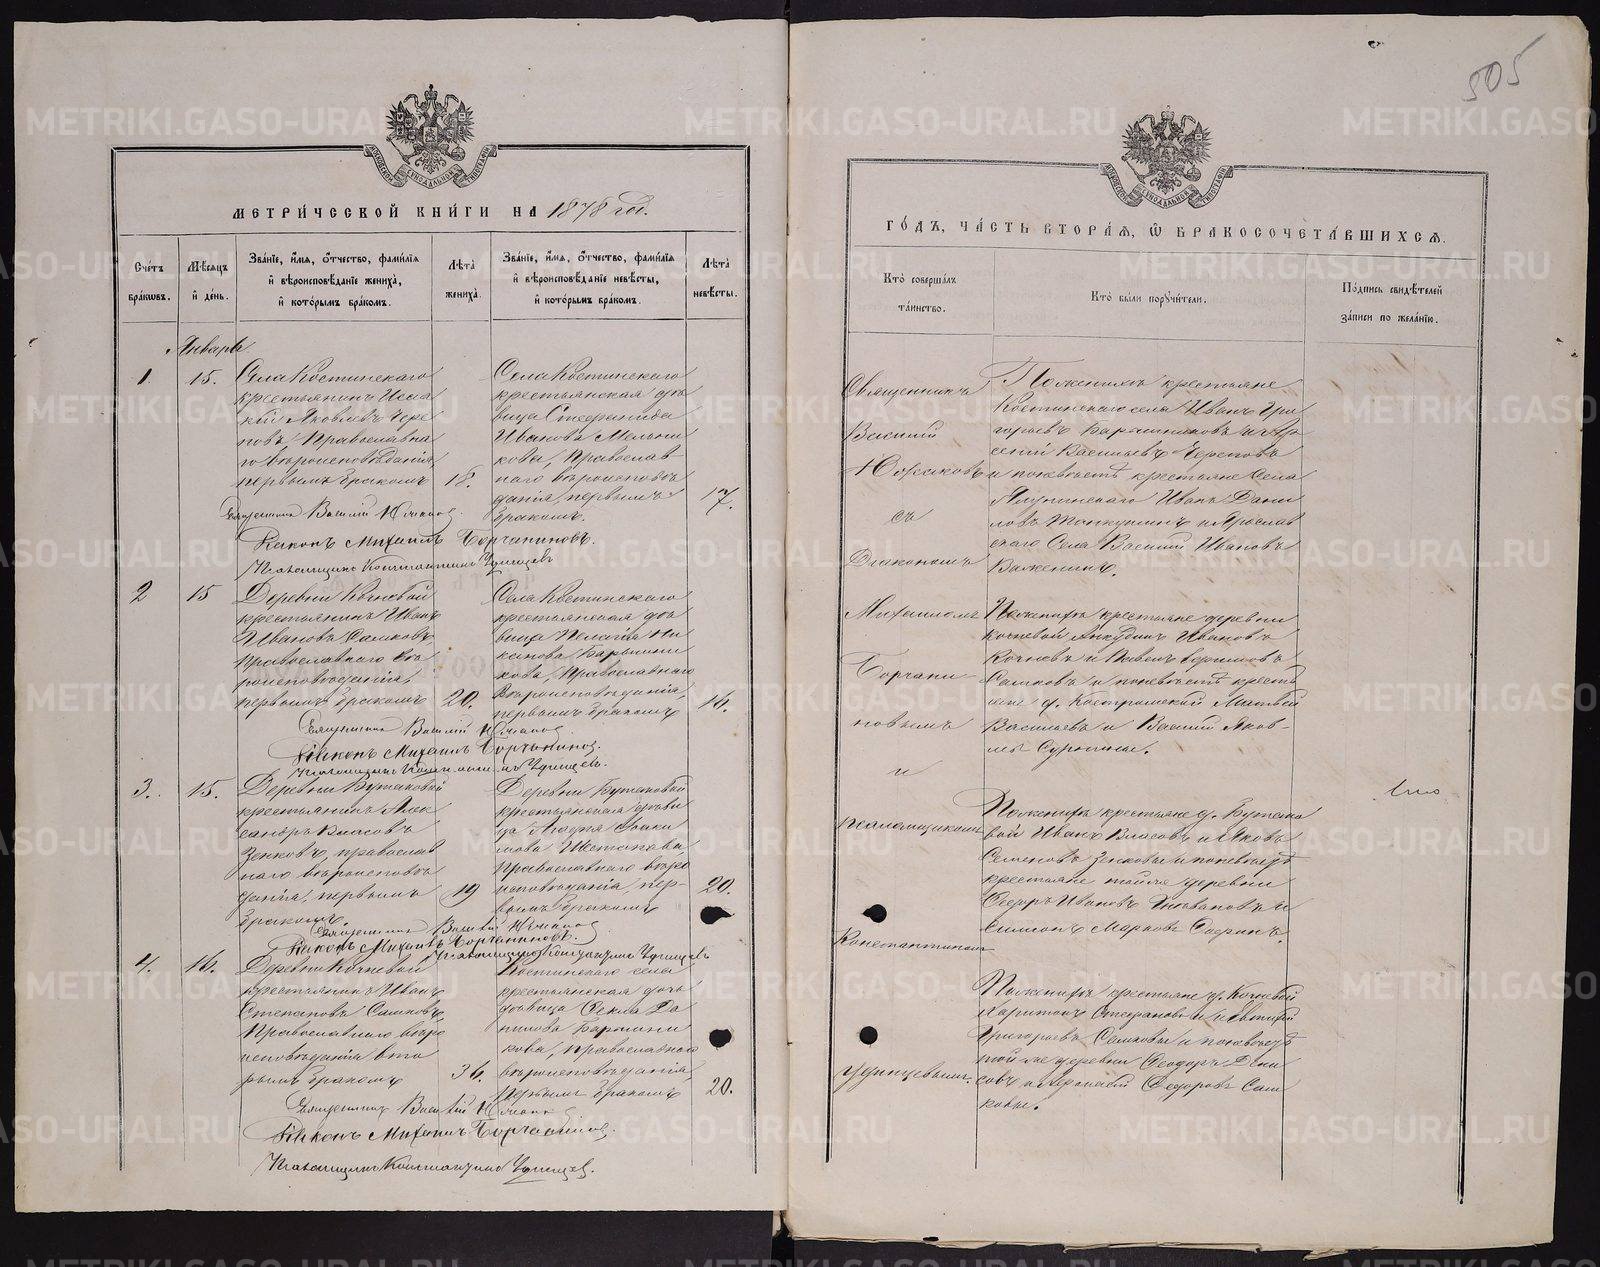 505
МЕТРИ́ЧЕСКОЙ КНИ́ГИ НА 1878 год.
Сче́тъ бра́кѡвъ.
Мѣ́сяцъ и де́нь.
Зва́нїе, и́мѧ, ѻ́тчество, фами́лїѧ
и вѣроисповѣ́данїе жениха̀,
и кото́рымъ бра́комъ.
Лѣ́та жениха̀.
Зва́нїе, и́мѧ, ѻ́тчество, фами́лїѧ
и вѣроисповѣ́данїе невѣ́сты,
и кото́рымъ бра́комъ.
Лѣ́та невѣ́сты.
Январь
1. 15.
Села Костинскаго
крестьянинъ Иса
кій Яковлевъ Чере
повъ, Православна
го вѣроисповѣданія,
первымъ бракомъ
18.
Села Костинскаго
крестьянская дѣ
вица Стефанида
Иванова Мельни
кова, Православ
наго вѣроисповѣ
данія первымъ
бракомъ.
17.
Священникъ Василій
Діаконъ Михаилъ Борчаниновъ.
Псаломщикъ Константинъ Удинцевъ
2 15
Деревни Кочневой
крестьянинъ Иванъ
Ивановъ Самковъ,
Православнаго вѣ
роисповѣданія,
первымъ бракомъ
20.
Села Костинскаго
крестьянская дѣ
вица Пелагія Ни
канова Барышни
кова, Православнаго
вѣроисповѣданія,
первымъ бракомъ
16.
Священникъ Василій
Діаконъ Михаилъ Борчаниновъ.
Псаломщикъ Константинъ Удинцевъ.
3. 15.
Деревни Бутаковой
крестьянинъ Алек
сандръ Власовъ
Зенковъ, православ
наго вѣроисповѣ
данія, первымъ
бракомъ.
19
Деревни Бутаковой
крестьянская дѣви
ца
православнаго вѣро
исповѣданія, пер-
вымъ бракомъ
20.
Священникъ Василій
Діаконъ Михаилъ Борчаниновъ.
Псаломщикъ Константинъ Удинцевъ
4. 16.
Деревни Кочневой
крестьянинъ Иванъ
Степановъ Самковъ,
Православнаго вѣро
исповѣданія вто
рымъ бракомъ
36.
Костинскаго села
крестьянская дочь
дѣвица Ѳекла Да
нилова Барышни
кова, православнаго
вѣроисповѣданія,
первымъ бракомъ
20.
Священникъ Василій
Діаконъ Михаилъ Борчаниновъ.
Псаломщикъ Константинъ Удинцевъ.
ГО́ДЪ, ЧА́СТЬ ВТОРА́Ѧ, Ѡ БРАКОСОЧЕТА́ВШИХСѦ.
Кто̀ соверша́лъ
та́инство.
Кто̀ бы́ли порꙋчи́тели.
По́дпись свидѣ́телей
за́писи по жела́нїю.
Священникъ
Василій
Южаковъ
съ
Діакономъ
Михаиломъ
Борчани
новымъ
и
псаломщикомъ
Константиномъ
Удинцевымъ.
По женихѣ крестьяне
Костинскаго села Иванъ Гри
горьевъ Барышниковъ и Ар
сеній Васильевъ Череповъ
и по невѣстѣ крестьяне Села
Иванъ Дани
ловъ и Ярослав
скаго Села Василій Ивановъ
Важенинъ.
По женихѣ крестьяне деревни
Кочневой Анкудинъ Ивановъ
Кочневъ и Павелъ
Самковъ и по невѣстѣ кресть
яне д. Костромской Матвей
Васильевъ и Василій Яков-
левъ
По женихѣ крестьяне д. Бутако
вой Иванъ Власовъ и Яковъ
Семеновъ Зенковы и по невѣстѣ
крестьяне тойже деревни
Ѳедоръ Ивановъ
Симонъ Марковъ
По женихѣ крестьяне д. Кочневой
Харитонъ Стефановъ и
Григорьевъ Самковы и по невѣстѣ
той же деревни Ѳеодоръ Дени
совъ и Ѳедоровъ Сам
ковы.
METRIKI.GASO-URAL.RU